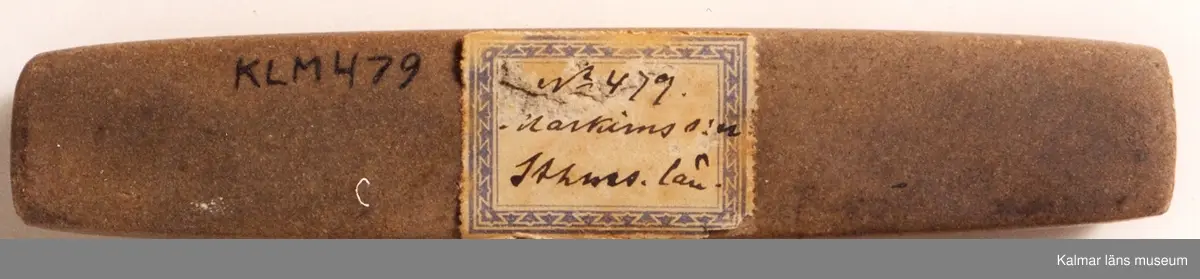 KLM479
No 479.
Markims s:n
Sthms. län.
Kalmar läns museum